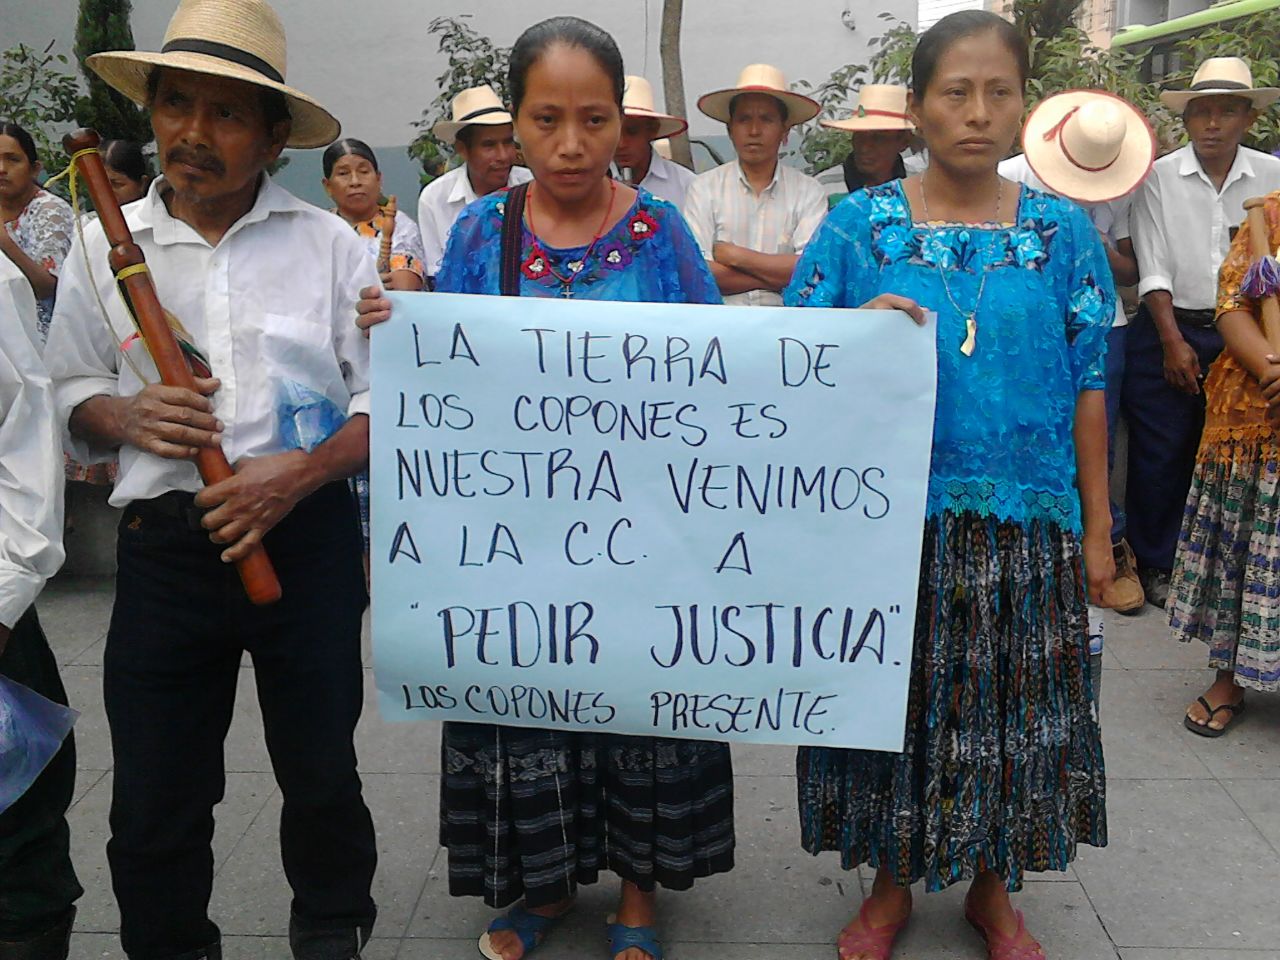 LA TIERRA DE
LOS COPONES ES
NUESTRA VENIMOS
A LA C.C. A
"PEDIR JUSTICIA".
LOS COPONES PRESENTE.